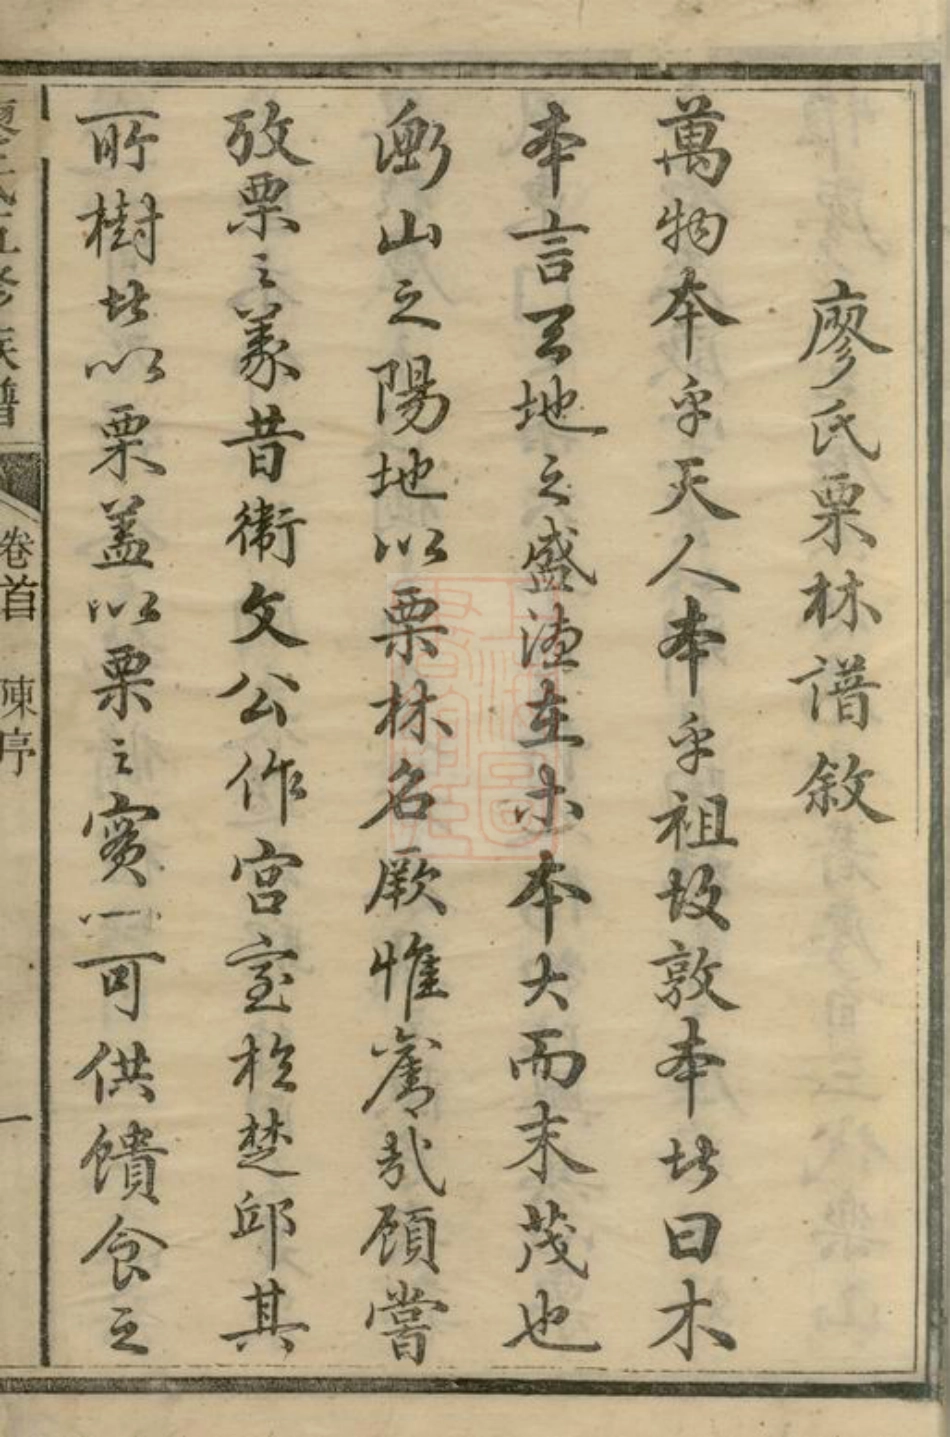 廖氏栗林譜敘
萬物本乎天人本乎祖故敦本者曰木
本言天地之盛德在木本大而末茂也
衡山之陽地以栗林名厥惟舊哉顧嘗
攷栗之義昔衛文公作宮室於楚邱其
所樹者以栗蓋以栗之實可供饋食之
廖氏五修族譜
卷首
陳序
一